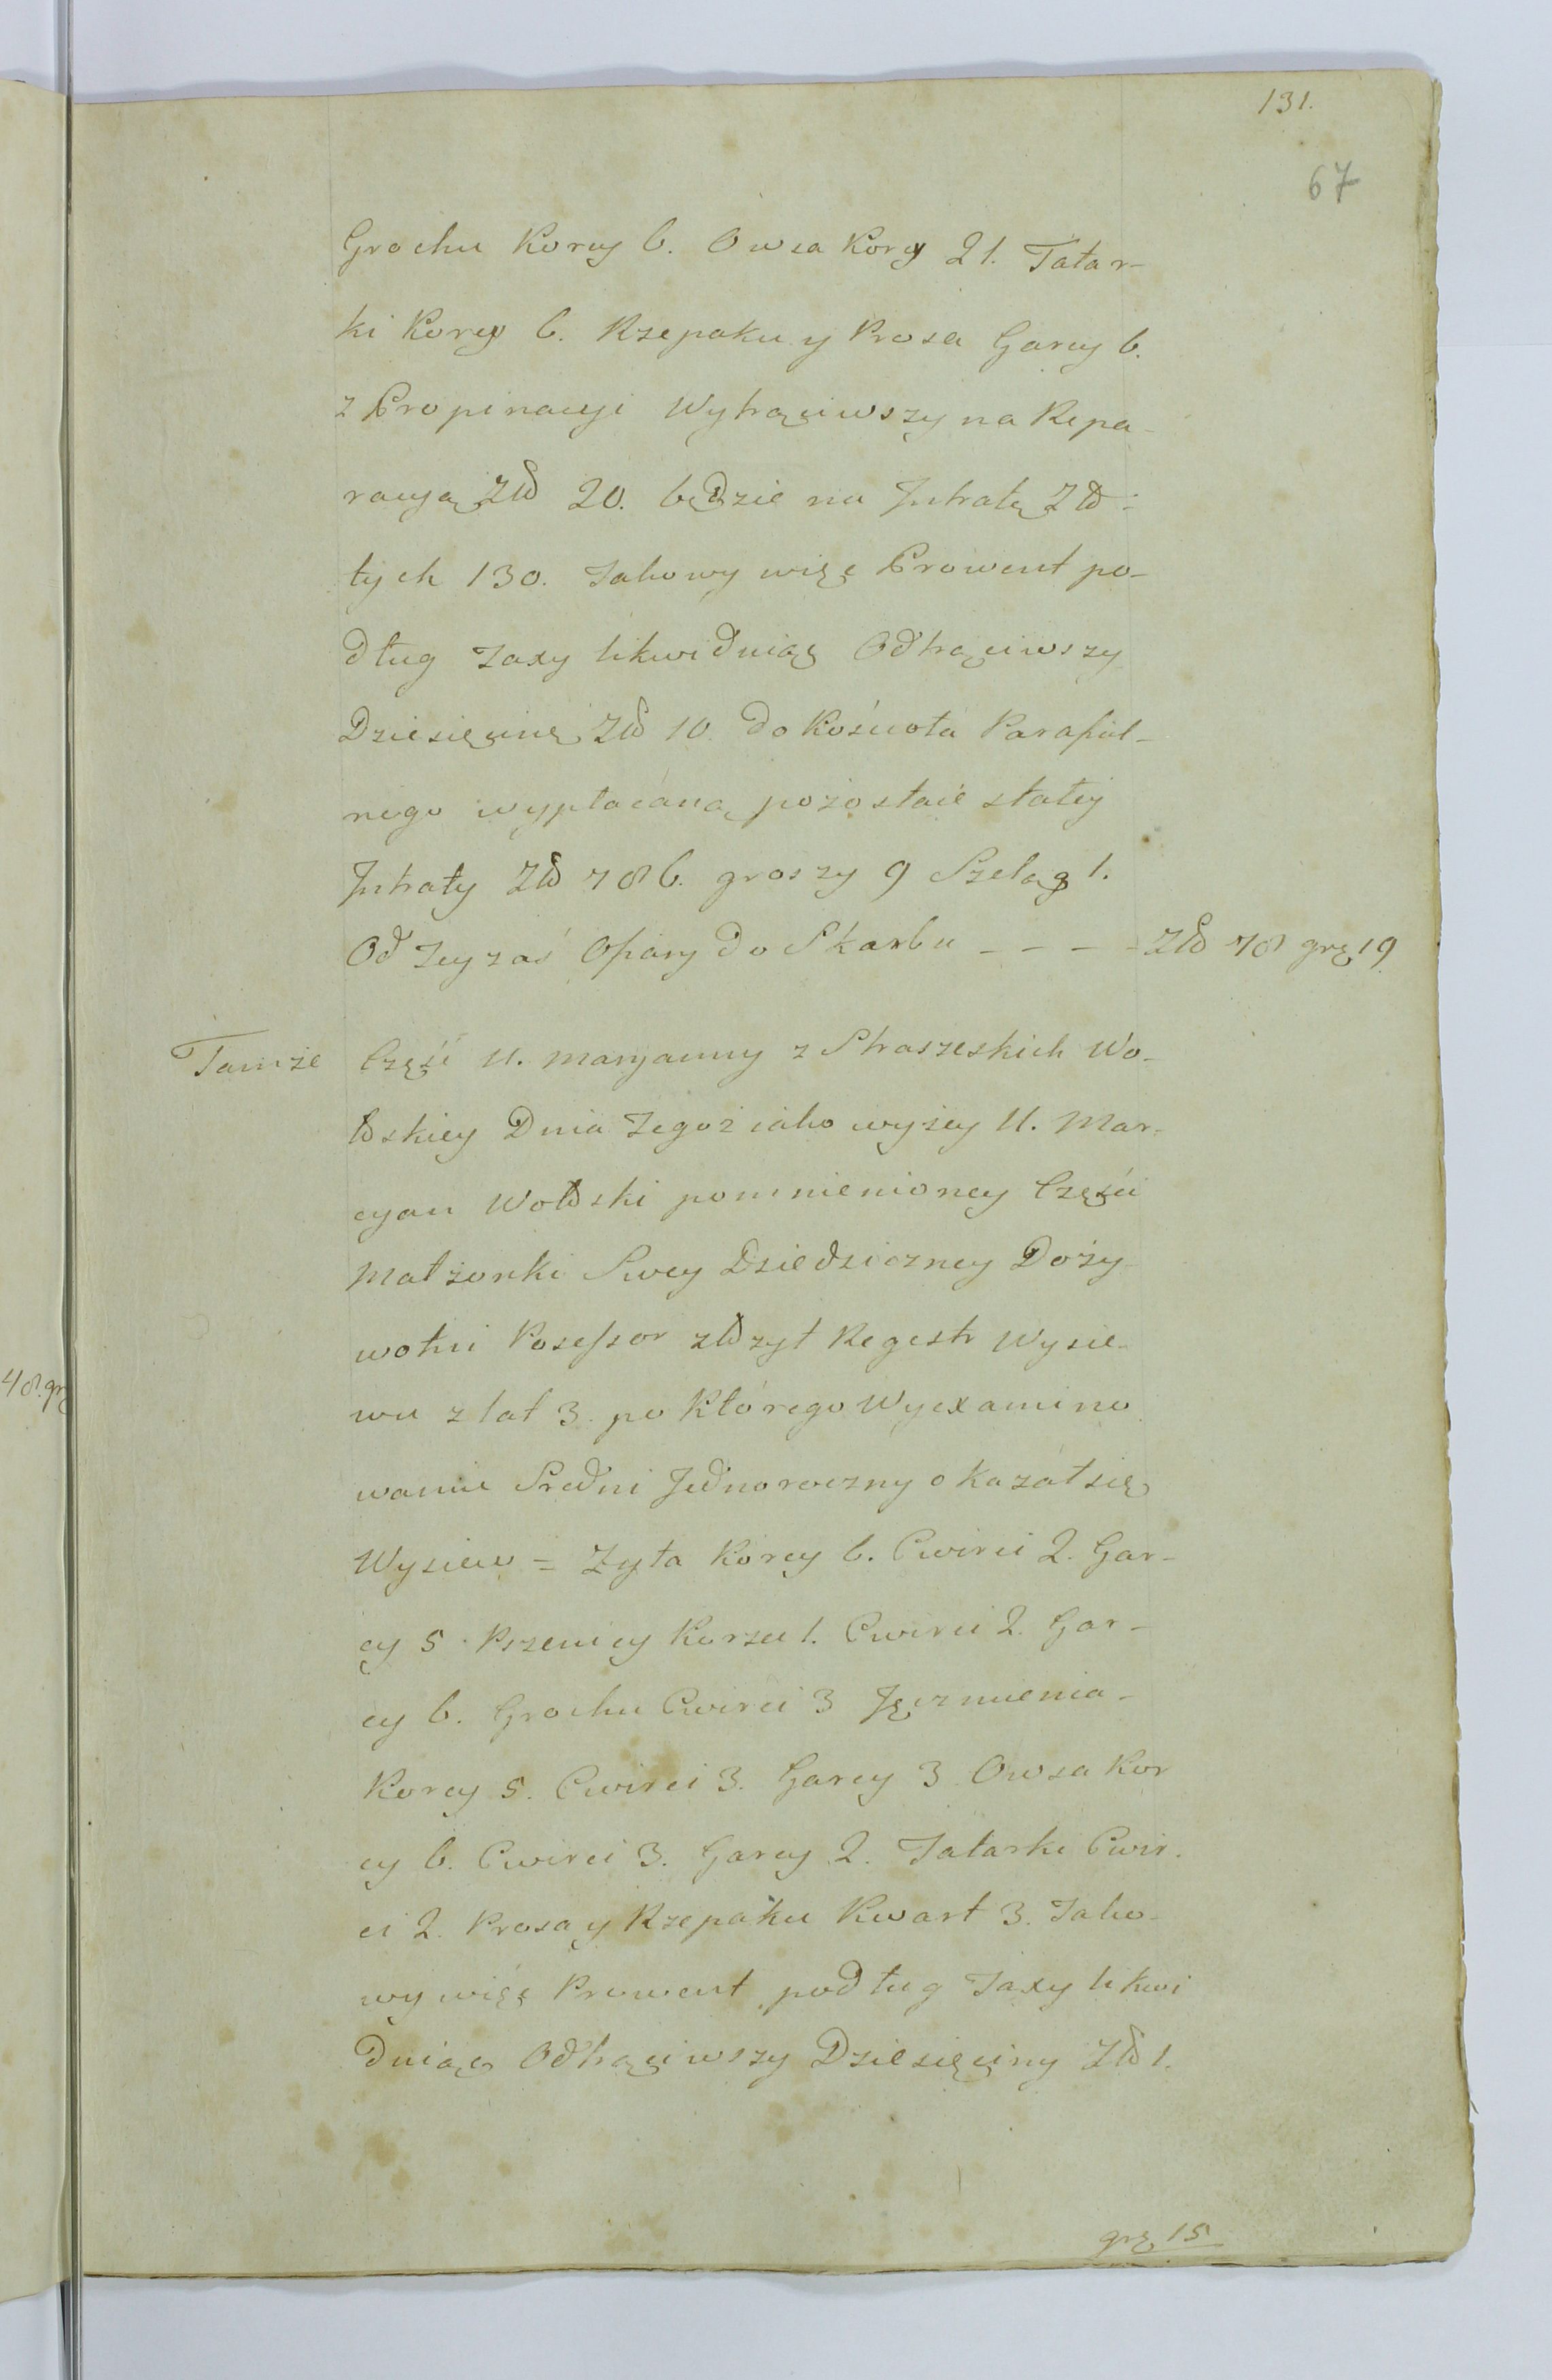 131.
67
Grochu Korcy 6. Owsa Korcy 21. Tatar-
ki Korcy 6. Rzepaku y Prosa Garcy 6.
z Propinacyi Wytrąciwszy na Repa-
racyą Złł 20. będzie na Jntratę Zło-
tych 130. Takowy więc Prowent po-
dług Taxy likwiduiąc Odtrąciwszy
Dziesięcinę Złł 10. do Kościoła Parafial-
nego wypłacaną, pozostaie stałey
Jntraty Złł 786. groszy 9 Szeląg 1.
Od Tey zaś Ofiary do Skarbu - - - - Złł 78 grę 19
Tamże Część U. Maryanny z Straszeskich Wo-
lskiey Dnia Tegoż iako wyżey U. Mar-
cyan Wolski pomnienioney Części
Małżonki Swey Dziedziczney Doży-
wotni Posessor złożył Regestr Wysie-
wu z lat 3. po Którego Wyexamino
waniu Sredni Jednoroczny okazał się
Wysiew = Zyta Korcy 6. Cwierci 2. Gar-
cy 5. Pszenicy Korzec 1. Cwierci 2. Gar-
cy 6. Grochu Cwierci 3 Jęczmienia-
Korcy 5. Cwierci 3. Garcy 3. Owsa Kor
cy 6. Cwierci 3. Garcy 2. Tatarki Cwier.
ci 2. Prosa y Rzepaku Kwart 3. Tako-
wy więc Prowent podług Taxy likwi
duiąc Odtrąciwszy Dziesięciny Złł 1.
grę 15
48. grę